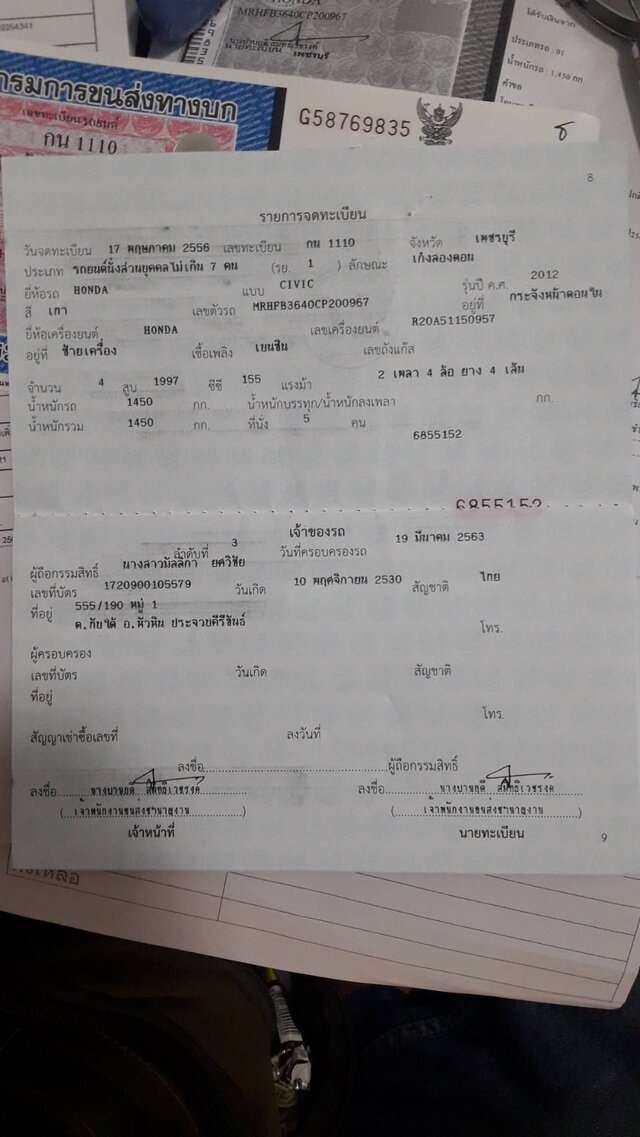 HONDA
MRHFB3640CP200967
นายทะเบียน เพชรบุรี
ได้รับเงินจาก
ประเภทรถ : 01
น้ำหนักรถ : 1,450 กก.
คำขอ
กรมการขนส่งทางบก
เลขทะเบียนรถยนต์
กน 1110
G58769835
8
รายการจดทะเบียน
วันจดทะเบียน 17 พฤษภาคม 2556 เลขทะเบียน กน 1110 จังหวัด เพชรบุรี
ประเภท รถยนต์นั่งส่วนบุคคลไม่เกิน 7 คน (รย. 1 ) ลักษณะ เก๋งสองตอน
ยี่ห้อรถ HONDA แบบ CIVIC รุ่นปี ค.ศ. 2012
สี เทา เลขตัวรถ MRHFB3640CP200967 อยู่ที่ กระจังหน้าตอนใน
ยี่ห้อเครื่องยนต์ HONDA เลขเครื่องยนต์ R20A51150957
อยู่ที่ ซ้ายเครื่อง เชื้อเพลิง เบนซิน เลขถังแก๊ส
จำนวน 4 สูบ 1997 ซีซี 155 แรงม้า 2 เพลา 4 ล้อ ยาง 4 เส้น
น้ำหนักรถ 1450 กก. น้ำหนักบรรทุก/น้ำหนักลงเพลา กก.
น้ำหนักรวม 1450 กก. ที่นั่ง 5 คน
6855152
6855152
เจ้าของรถ
ลำดับที่ 3 วันที่ครอบครองรถ 19 มีนาคม 2563
ผู้ถือกรรมสิทธิ์ นางสาวมัลลิกา ยศวิชัย
เลขที่บัตร 1720900105579 วันเกิด 10 พฤศจิกายน 2530 สัญชาติ ไทย
ที่อยู่ 555/190 หมู่ 1
ต.ทับใต้ อ.หัวหิน ประจวบคีรีขันธ์ โทร.
ผู้ครอบครอง
เลขที่บัตร วันเกิด สัญชาติ
ที่อยู่
โทร.
สัญญาเช่าซื้อเลขที่ ลงวันที่
ลงชื่อ ผู้ถือกรรมสิทธิ์
ลงชื่อ ลงชื่อ
(เจ้าพนักงานขนส่งชำนาญงาน) (เจ้าพนักงานขนส่งชำนาญงาน)
เจ้าหน้าที่ นายทะเบียน
9